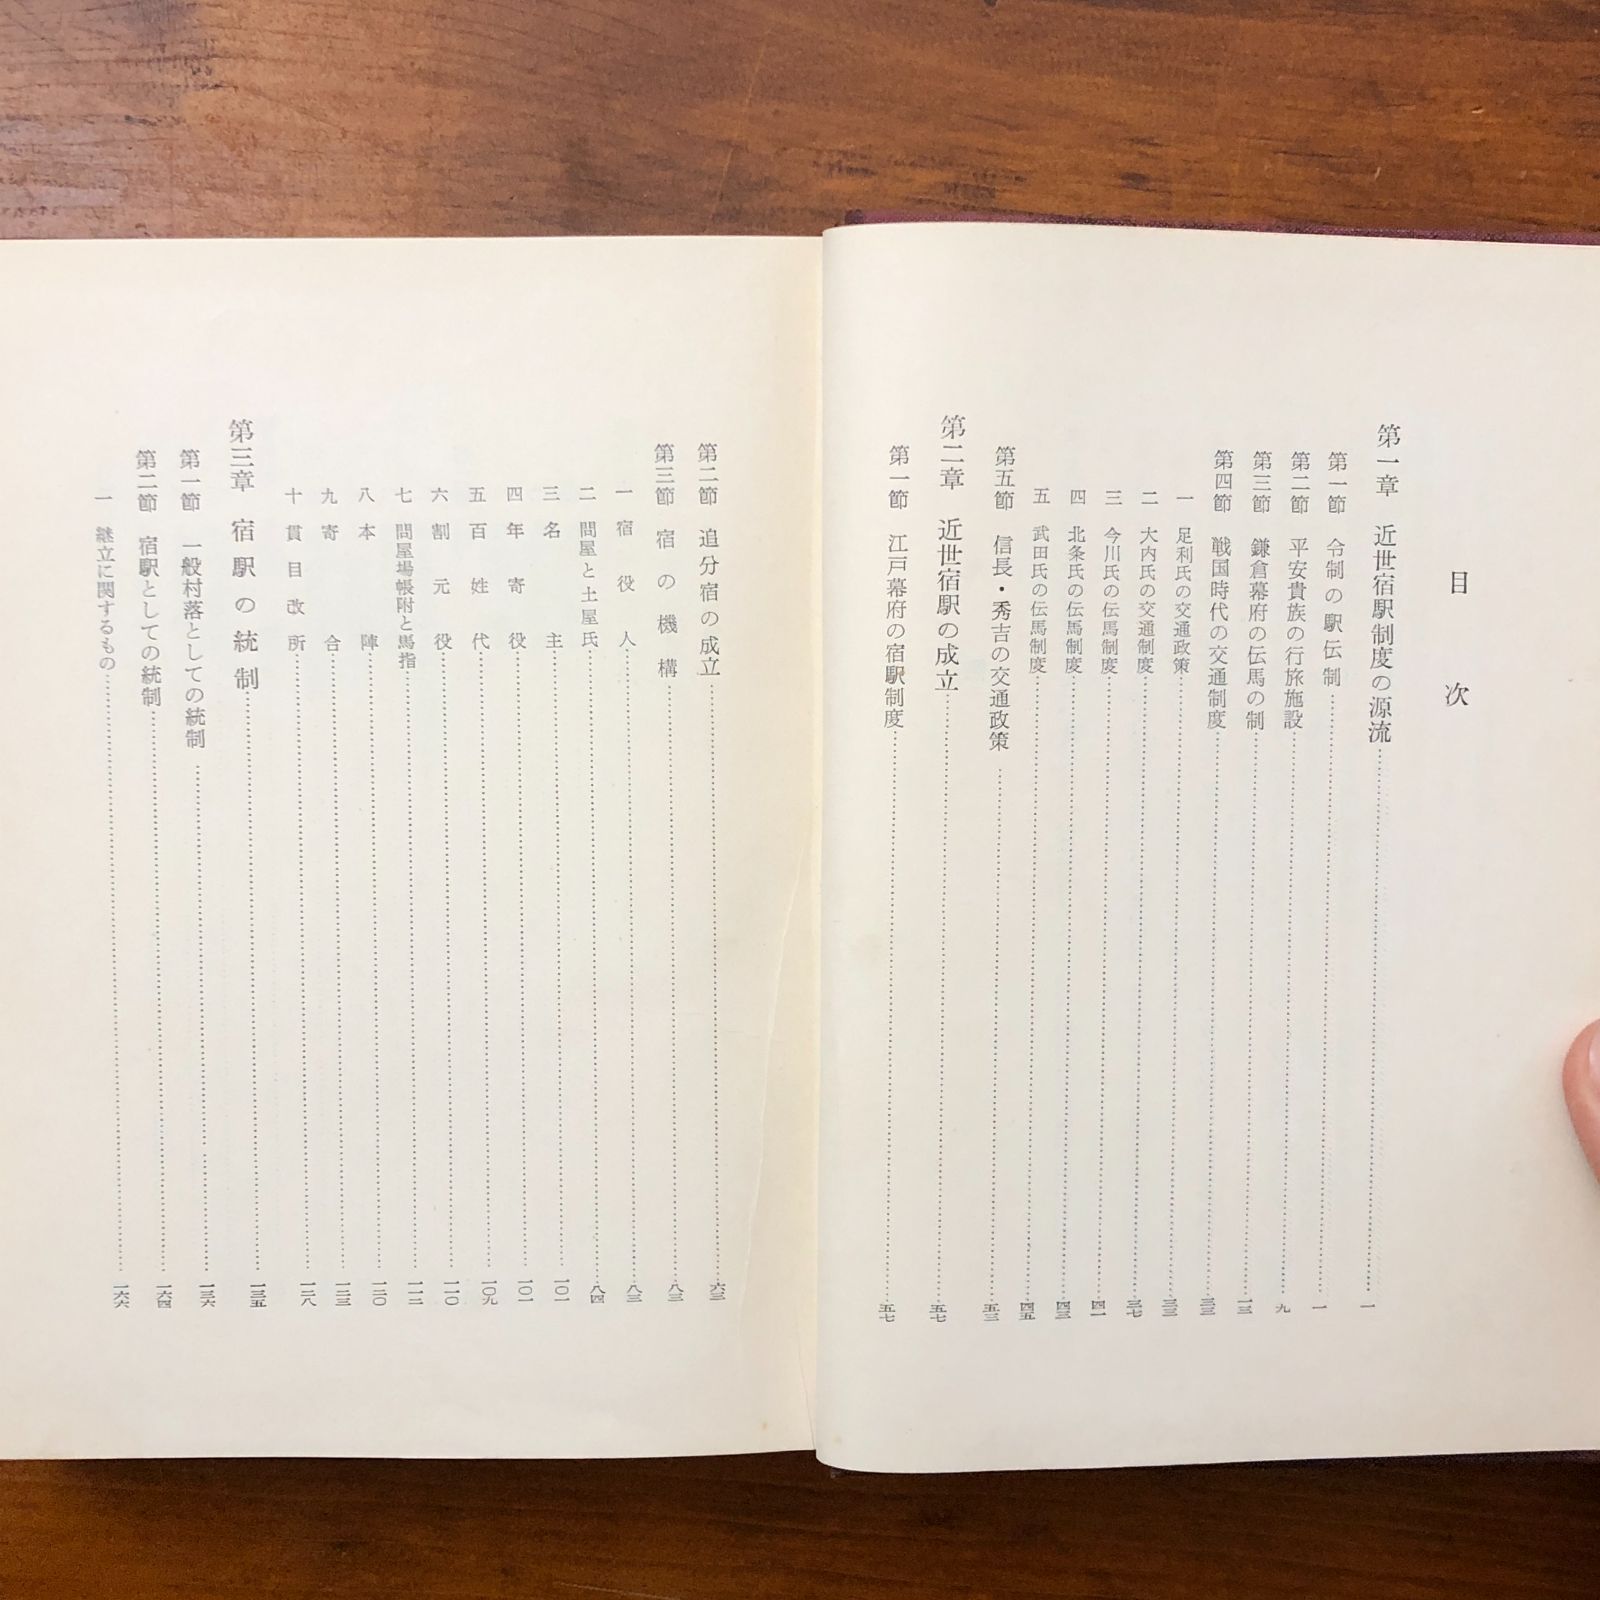 目次
第一章 近世宿駅制度の源流……一
第一節 令制の駅伝制……一
第二節 平安貴族の行旅施設……九
第三節 鎌倉幕府の伝馬の制……一三
第四節 戦国時代の交通制度……三三
一 足利氏の交通政策……三三
二 大内氏の交通制度……三七
三 今川氏の伝馬制度……四一
四 北条氏の伝馬制度……四三
五 武田氏の伝馬制度……四五
第五節 信長・秀吉の交通政策……五三
第二章 近世宿駅の成立……五七
第一節 江戸幕府の宿駅制度……五七
第二節 追分宿の成立……六三
第三節 宿の機構……八三
一 宿役人……八三
二 問屋と土屋氏……八四
三 名主……一〇一
四 年寄役……一〇一
五 百姓代……一〇九
六 割元役……一一〇
七 問屋場帳附と馬指……一一二
八 本陣……一二〇
九 寄合……一二三
十 貫目改所……一二八
第三章 宿駅の統制……一三五
第一節 一般村落としての統制……一三六
第二節 宿駅としての統制……一六四
一 継立に関するもの……一六六